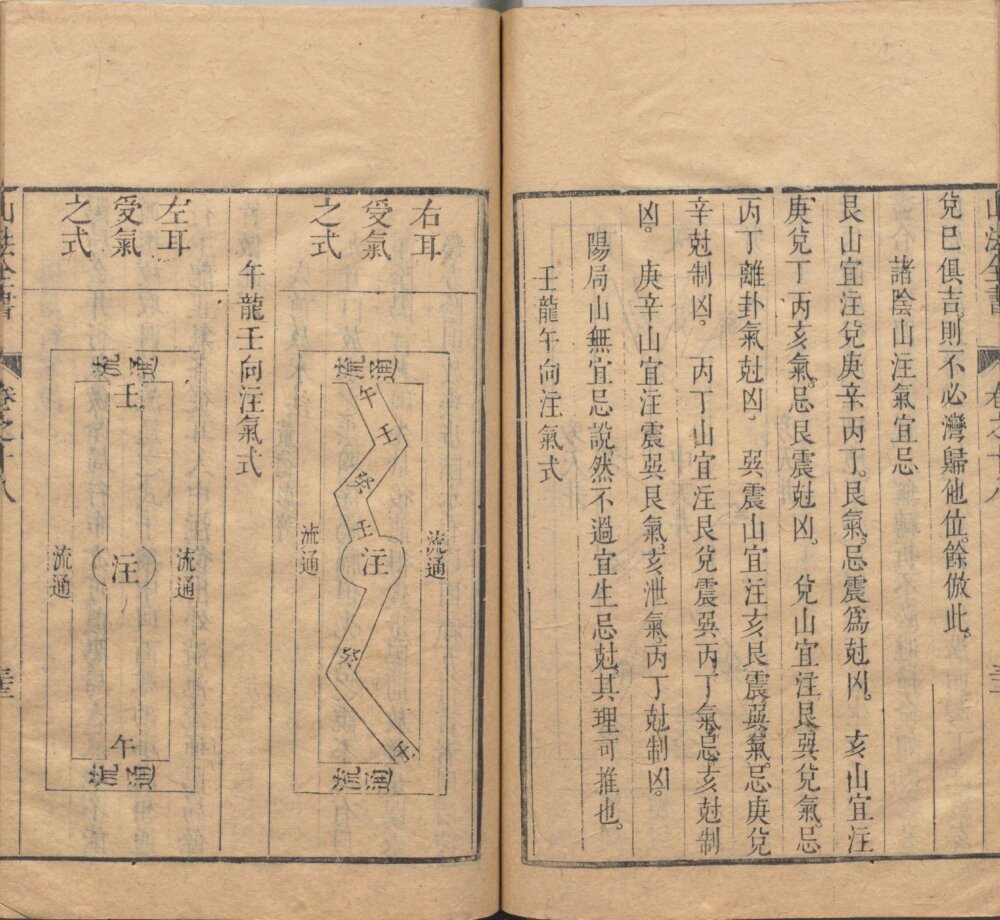 兌巳俱吉。則不必灣歸他位。餘倣此。
諸陰山注氣宜忌
艮山宜注兌庚辛丙丁。艮氣。忌震為尅凶。　亥山宜注
庚兌丁丙亥氣。忌艮震尅凶。　兌山宜注艮巽兌氣。忌
丙丁離卦氣尅凶。　巽震山宜注亥艮震巽氣。忌庚兌
辛尅制凶。　丙丁山宜注艮兌震巽丙丁氣。忌亥尅制
凶。　庚辛山宜注震巽艮氣。亥泄氣。丙丁尅制凶。
陽局山無宜忌說。然不過宜生忌尅。其理可推也。
壬龍午向注氣式
右耳
受氣
之式
溝
午
壬
癸
壬
注
癸
壬
流通
流通
午龍壬向注氣式
左耳
受氣
之式
壬
注
流通
流通
午
山法全書
卷之十八